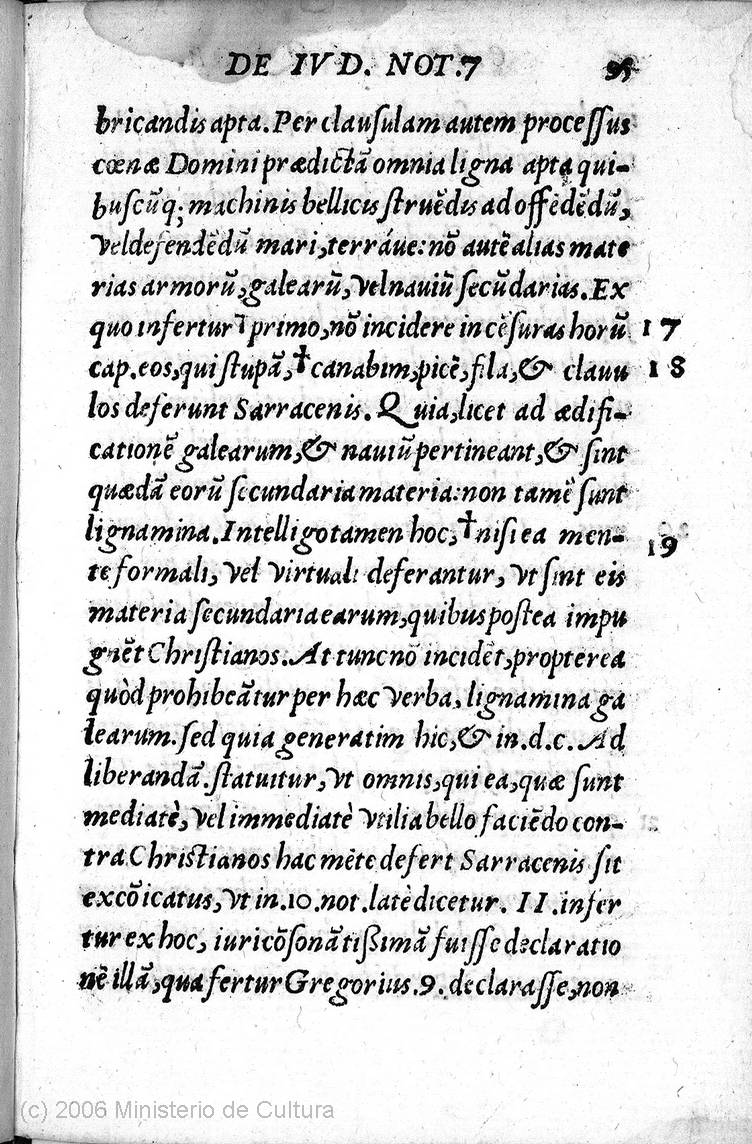 DE IVD. NOT.7 95
bricandis apta. Per clauſulam autem proceſſus
cœnæ Domini prædictā omnia ligna apta qui-
buſcūq; machinis bellicis ſtruēdis ad offēdēdū,
vel defendēdū mari, terráve: nō autē alias mate
rias armorū, galearū, vel nauiū ſecūdarias. Ex
quo infertur † primo, nō incidere in cēſuras horū 17
cap. eos, qui ſtupā, † canabim, picē, fila, & clauu 18
los deferunt Sarracenis. Quia, licet ad ædifi-
cationē galearum, & nauiū pertineant, & ſint
quædā eorū ſecundaria materia: non tamē ſunt
lignamina. Intelligo tamen hoc, † niſi ea men- 19
te formali, vel virtuali deferantur, vt ſint eis
materia ſecundaria earum, quibus poſtea impu
gnēt Chriſtianos. At tunc nō incidēt, propterea
quòd prohibeātur per hæc verba, lignamina ga
learum. ſed quia generatim hic, & in. d. c. Ad
liberandā. ſtatuitur, vt omnis, qui ea, quæ ſunt
mediatè, vel immediatè vtilia bello faciēdo con-
tra Chriſtianos hac mēte defert Sarracenis ſit
excōicatus, vt in. 10. not. latè dicetur. II. infer
tur ex hoc, iuri cōſonātiſsimā fuiſſe declaratio
nē illā, qua fertur Gregorius. 9. declaraſſe, non
(c) 2006 Ministerio de Cultura